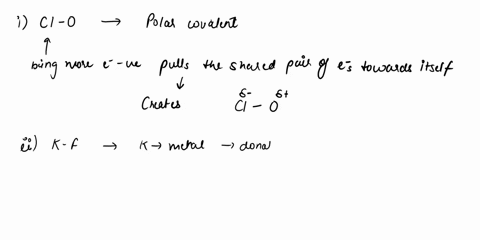 i) Cl-O → Polar covalent
↑
being more e⁻-ve pulls the shared pair of e⁻s towards itself
↓
Creates δ- δ+
Cl – O
ii) K-F → K → metal → dona